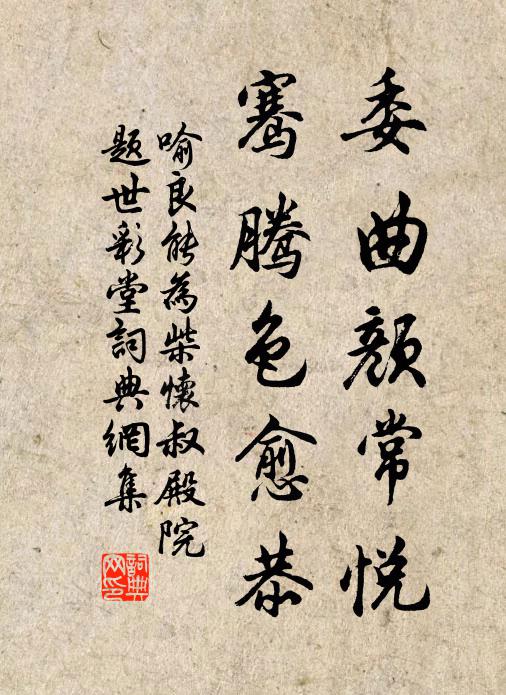 委曲颜常悦
骞腾色愈恭
喻良能為柴懷叔殿院
题世彩堂詞典網集
詞典網印